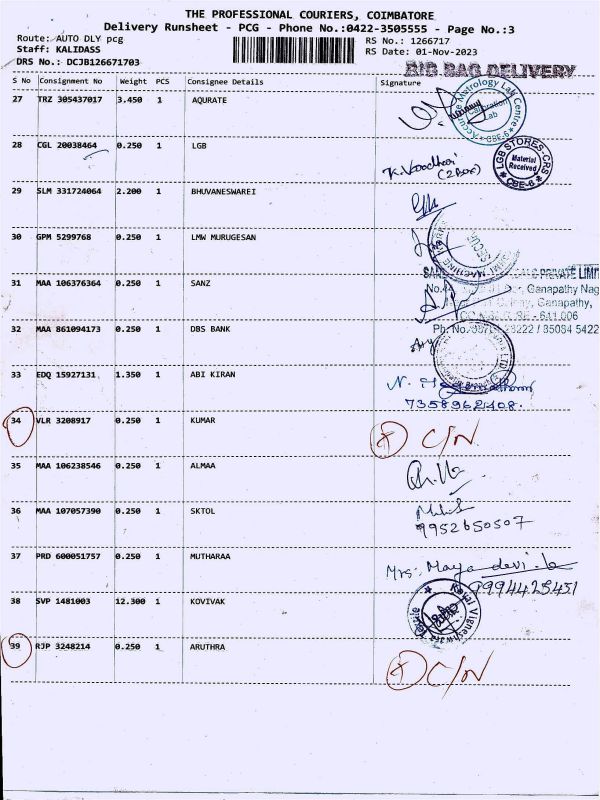 THE PROFESSIONAL COURIERS, COIMBATORE
Delivery Runsheet - PCG - Phone No.:0422-3505555 - Page No.:3
Route: AUTO DLY pcg
RS No.: 1266717
Staff: KALIDASS
RS Date: 01-Nov-2023
DRS No.: DCJB126671703
BIG BAG DELIVERY
S No Consignment No Weight PCS Consignee Details Signature
27 TRZ 305437017 3.450 1 AQURATE
Accurate Metrology Lab Centre
Calibration Lab
CBE-6
28 CGL 20038464 0.250 1 LGB
LGB STORES-CRS
Material Received
CBE-6
(2Box)
29 SLM 331724064 2.200 1 BHUVANESWAREI
30 GPM 5299768 0.250 1 LMW MURUGESAN
31 MAA 106376364 0.250 1 SANZ
PRIVATE LIMIT
Ganapathy Nag
Ganapathy,
641 006
/ 85084 5422
32 MAA 861094173 0.250 1 DBS BANK
33 EDQ 15927131 1.350 1 ABI KIRAN
7358962408.
34 VLR 3208917 0.250 1 KUMAR
C/N
35 MAA 106238546 0.250 1 ALMAA
36 MAA 107057390 0.250 1 SKTOL
9952650507
37 PRD 600051757 0.250 1 MUTHARAA
Mrs. Maya devi.
9994425451
38 SVP 1481003 12.300 1 KOVIVAK
39 RJP 3248214 0.250 1 ARUTHRA
C/N